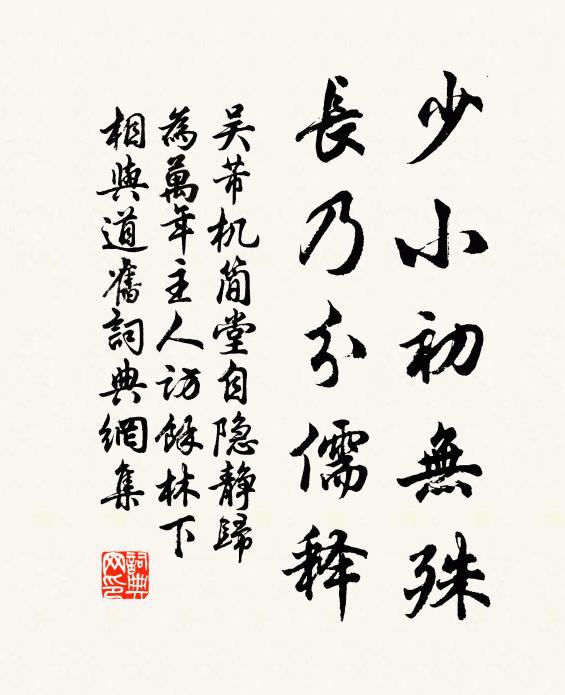 少小初無殊
長乃分儒释
吴芾机简堂自隐静歸
為萬年主人访馀林下
相與道舊詞典網集
詞典
网印